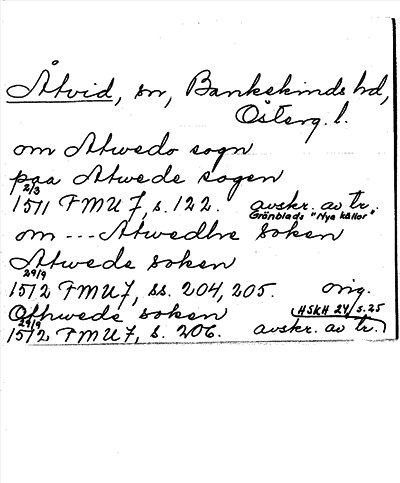 Åtvid, sn, Bankekinds hd,
Österg. l.
om Atwedo sogn
paa Atwede sogen
2/3
1511 FMU 7, s. 122. avskr. av tr.
Grönblads "Nya källor".
om --- Atwedhe soken
Atwede soken
29/9
1512 FMU 7, ss. 204, 205. orig.
Othwede soken HSKH 24/s. 25
29/9
1512 FMU 7, s. 206. avskr. av tr.